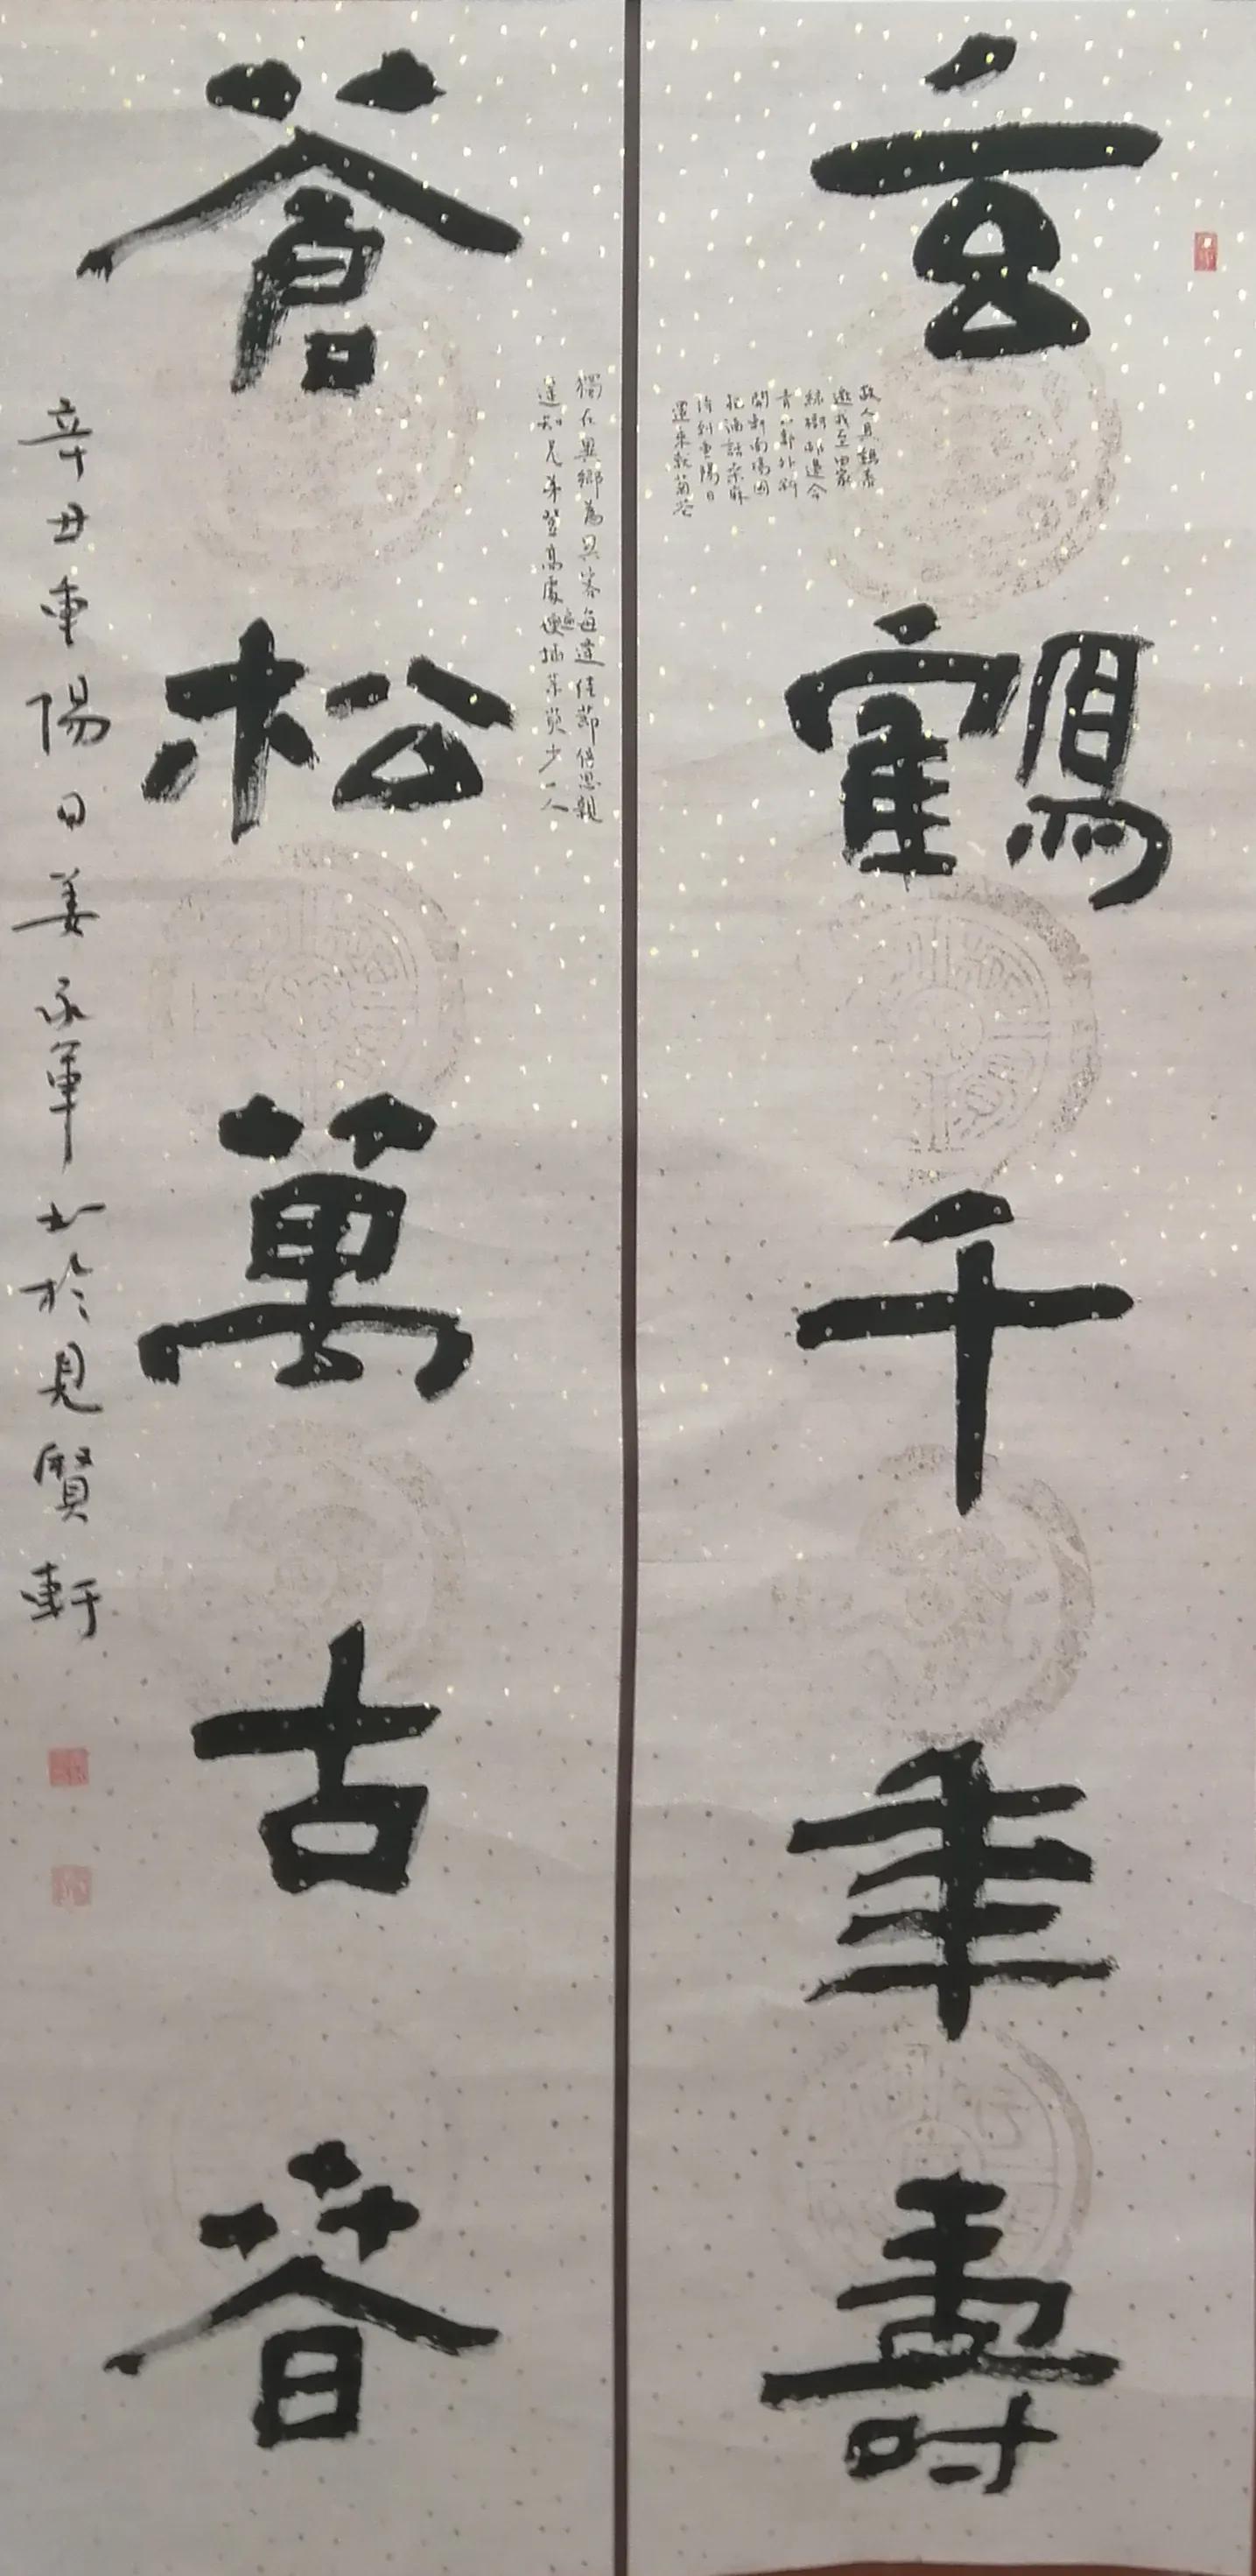 玄鶴千年壽
故人具雞黍
邀我至田家
綠樹邨邊合
青山郭外斜
開軒面場圃
把酒話桑麻
待到重陽日
還來就菊花
蒼松萬古春
獨在異鄉為異客每逢佳節倍思親
遙知兄弟登高處遍插茱萸少一人
辛丑重陽日姜永軍书於見賢軒